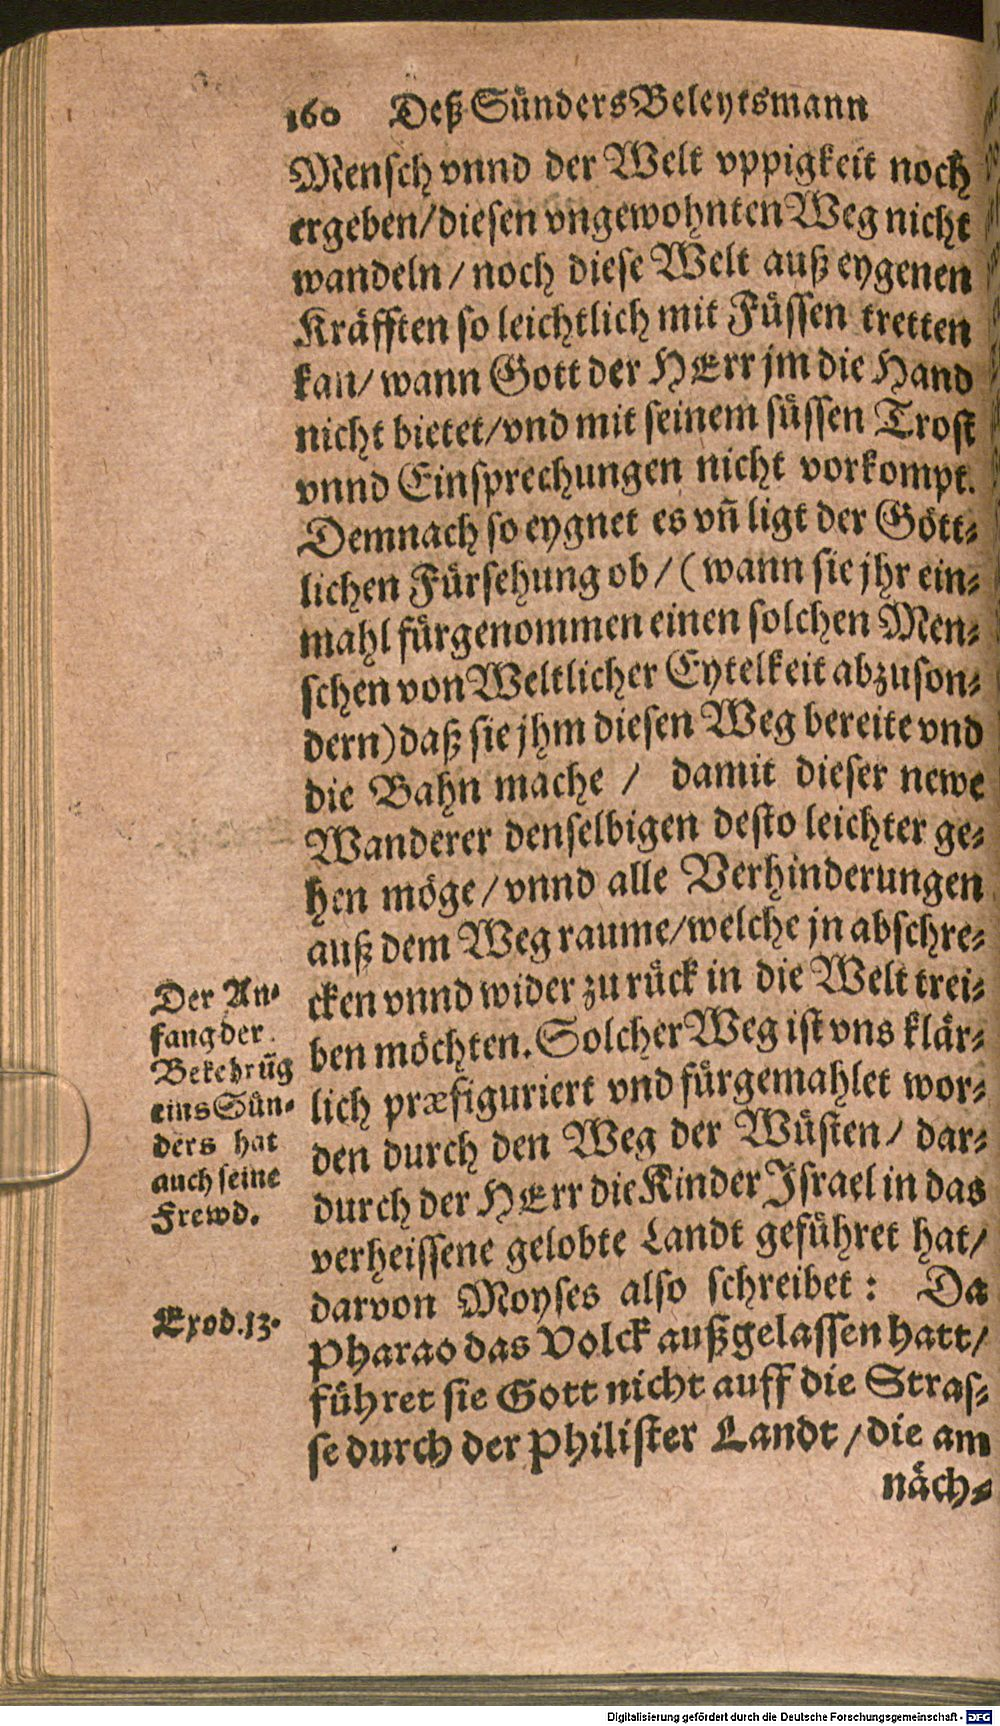 160 Deß Sünders Beleytsmann
Mensch vnnd der Welt vppigkeit noch
ergeben/diesen vngewohnten Weg nicht
wandeln/noch diese Welt auß eygenen
Kräfften so leichtlich mit Füssen tretten
kan/wann Gott der HErr jm die Hand
nicht bietet/vnd mit seinem süssen Trost
vnnd Einsprechungen nicht vorkompt.
Demnach so eygnet es vñ ligt der Gött-
lichen Fürsehung ob/(wann sie jhr ein-
mahl fürgenommen einen solchen Men-
schen von Weltlicher Eytelkeit abzuson-
dern) daß sie jhm diesen Weg bereite vnd
die Bahn mache / damit dieser newe
Wanderer denselbigen desto leichter ge-
hen möge/vnnd alle Verhinderungen
auß dem Weg raume/welche jn abschre-
cken vnnd wider zu rück in die Welt trei-
ben möchten. Solcher Weg ist vns klär-
lich præfiguriert vnd fürgemahlet wor-
den durch den Weg der Wüsten/ dar-
durch der HErr die Kinder Israel in das
verheissene gelobte Landt geführet hat/
darvon Moyses also schreibet: Da
Pharao das Volck außgelassen hatt/
führet sie Gott nicht auff die Stras-
se durch der Philister Landt/die am
näch-
Der An-
fang der
Bekehrūg
eins Sün-
ders hat
auch seine
Frewd.
Exod.13.
Digitalisierung gefördert durch die Deutsche Forschungsgemeinschaft - DFG